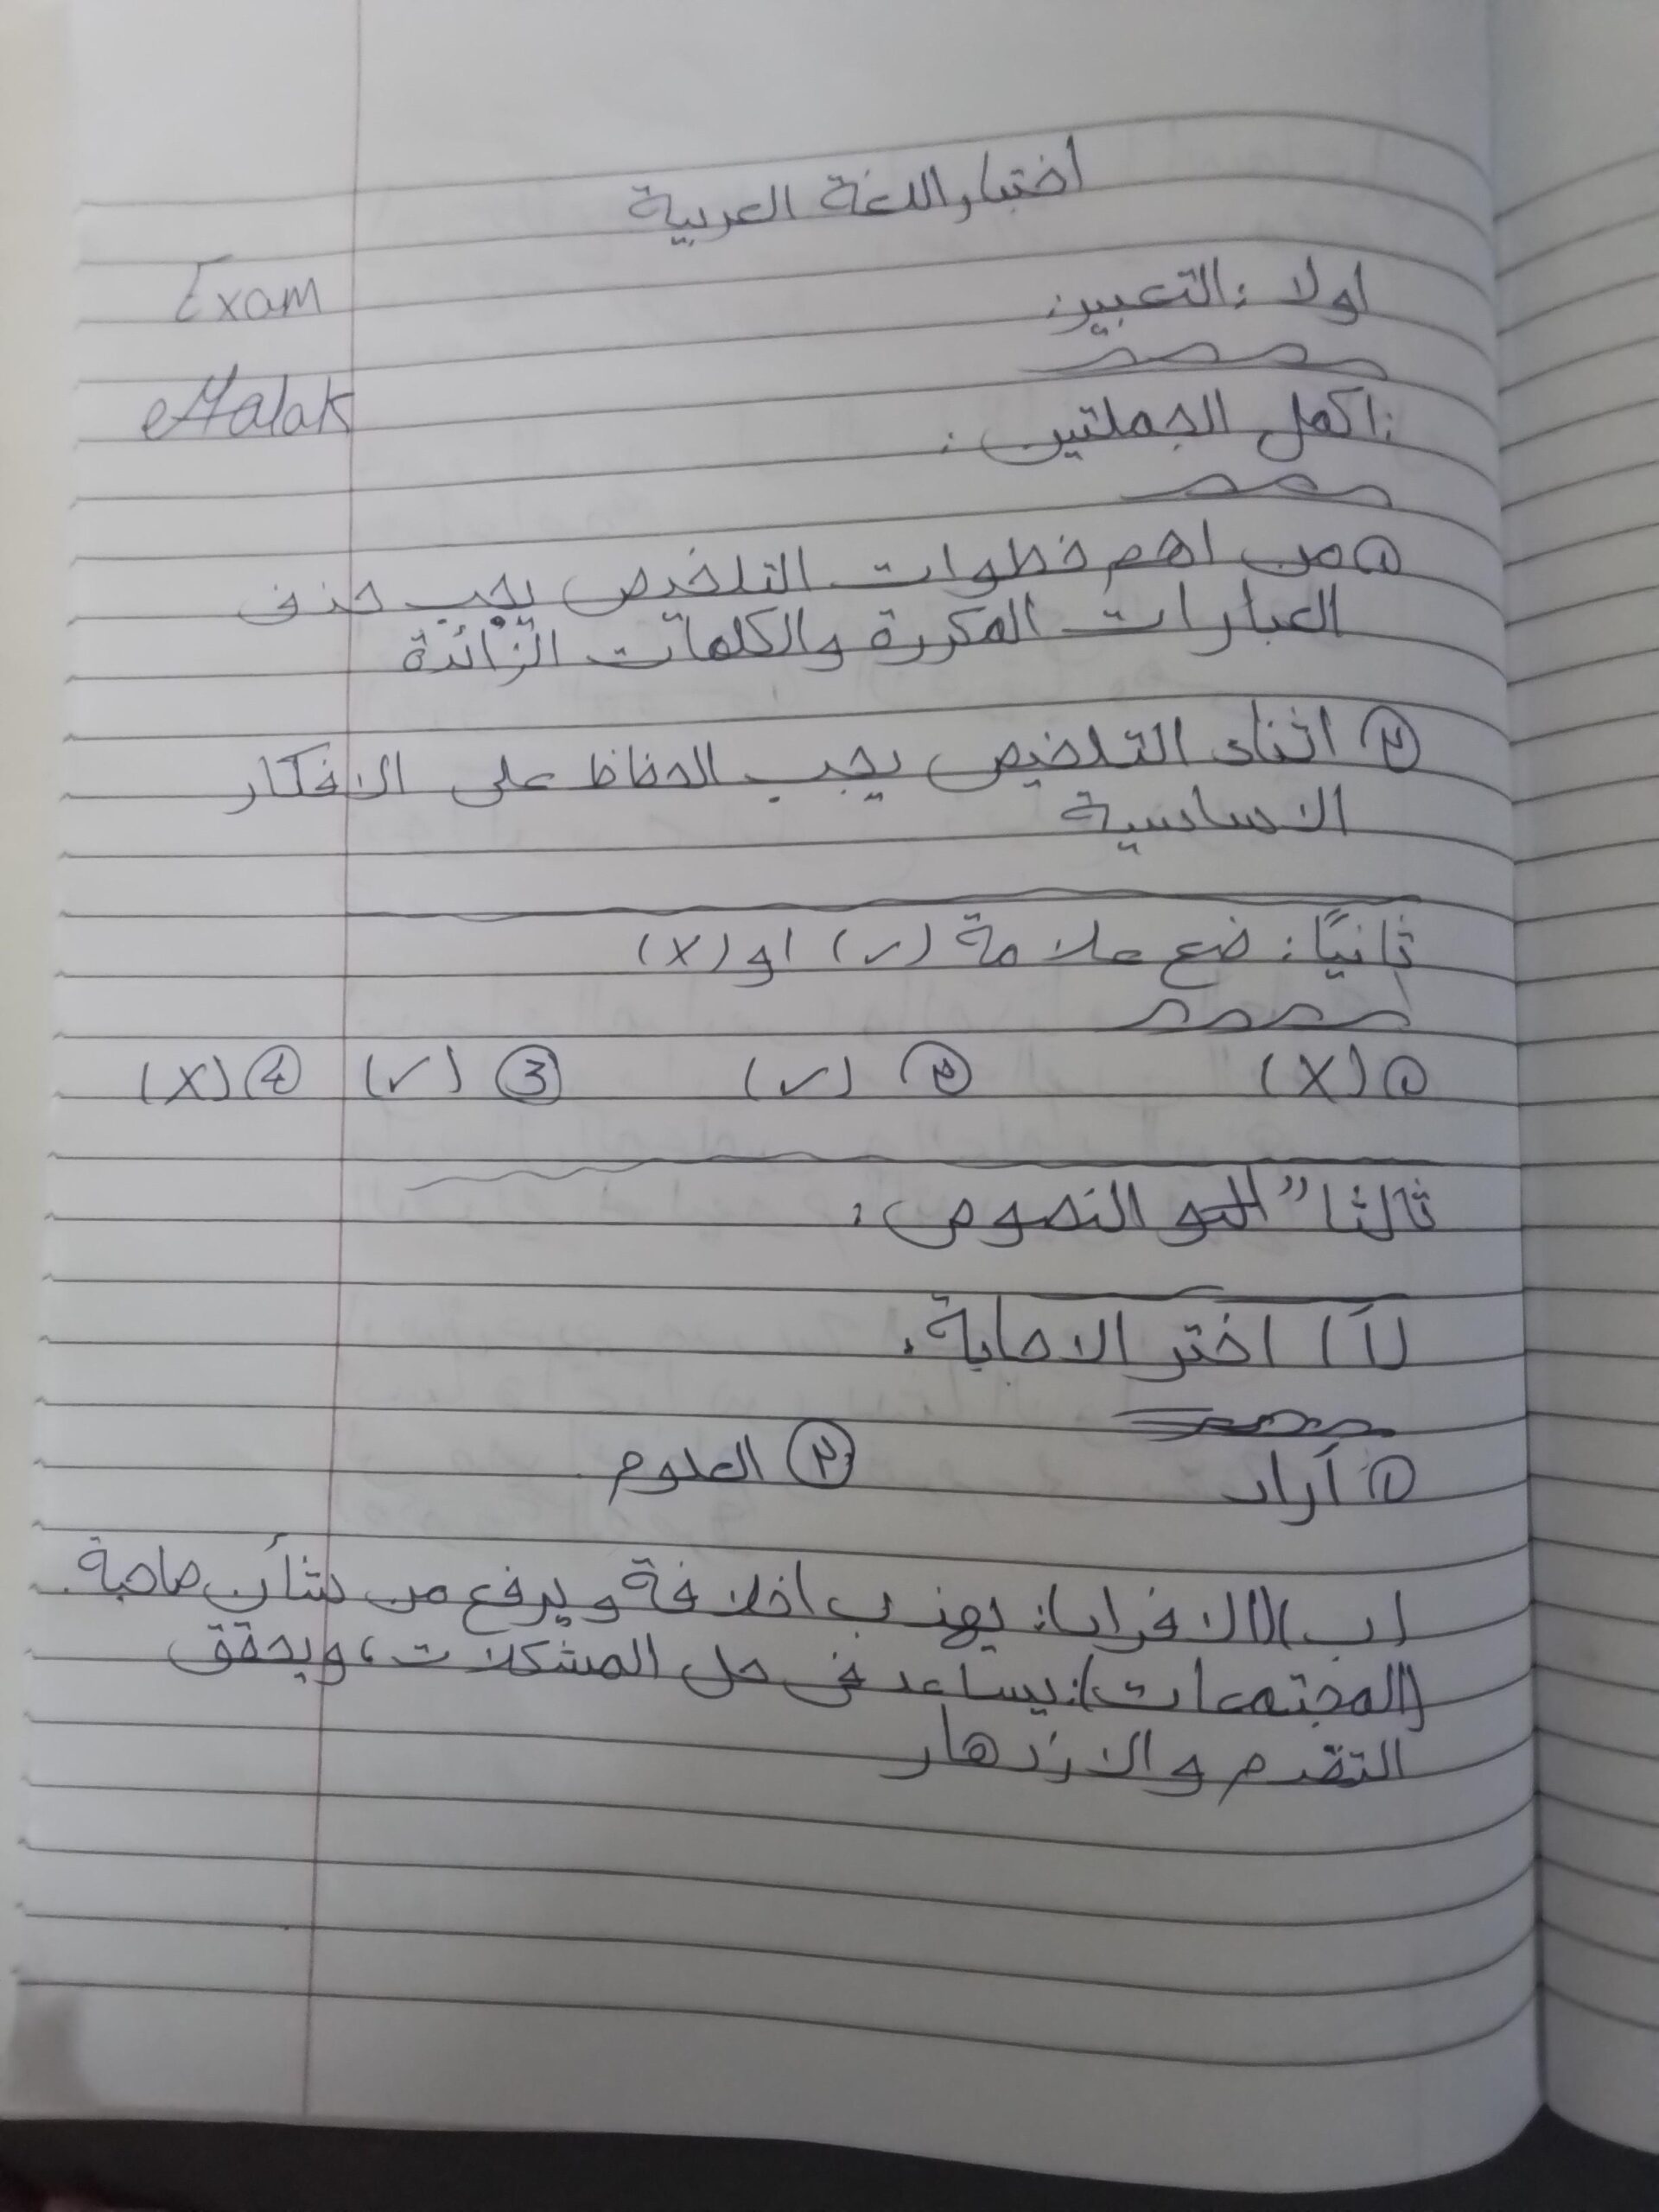 اختبار اللغة العربية
Exam
اولا :التعبير:
Malak
:اكمل الجملتين :
① من اهم خطوات التلخيص يجب حذف
العبارات المكررة والكلمات الزائدة
② اثناء التلخيص يجب الحفاظ على الافكار
الاساسية
ثانيًا: ضع علامة (✓) او (X)
① (X) ② (✓) ③ (✓) ④ (X)
ثالثا" النصوص:
(أ) اختر الاجابة.
① آراء ② العلوم
(ب) (الافراد): يهذب اخلاقة ويرفع من شأن صاحبة.
(المجتمعات): يساعد في حل المشكلات، ويحقق
التقدم والازدهار